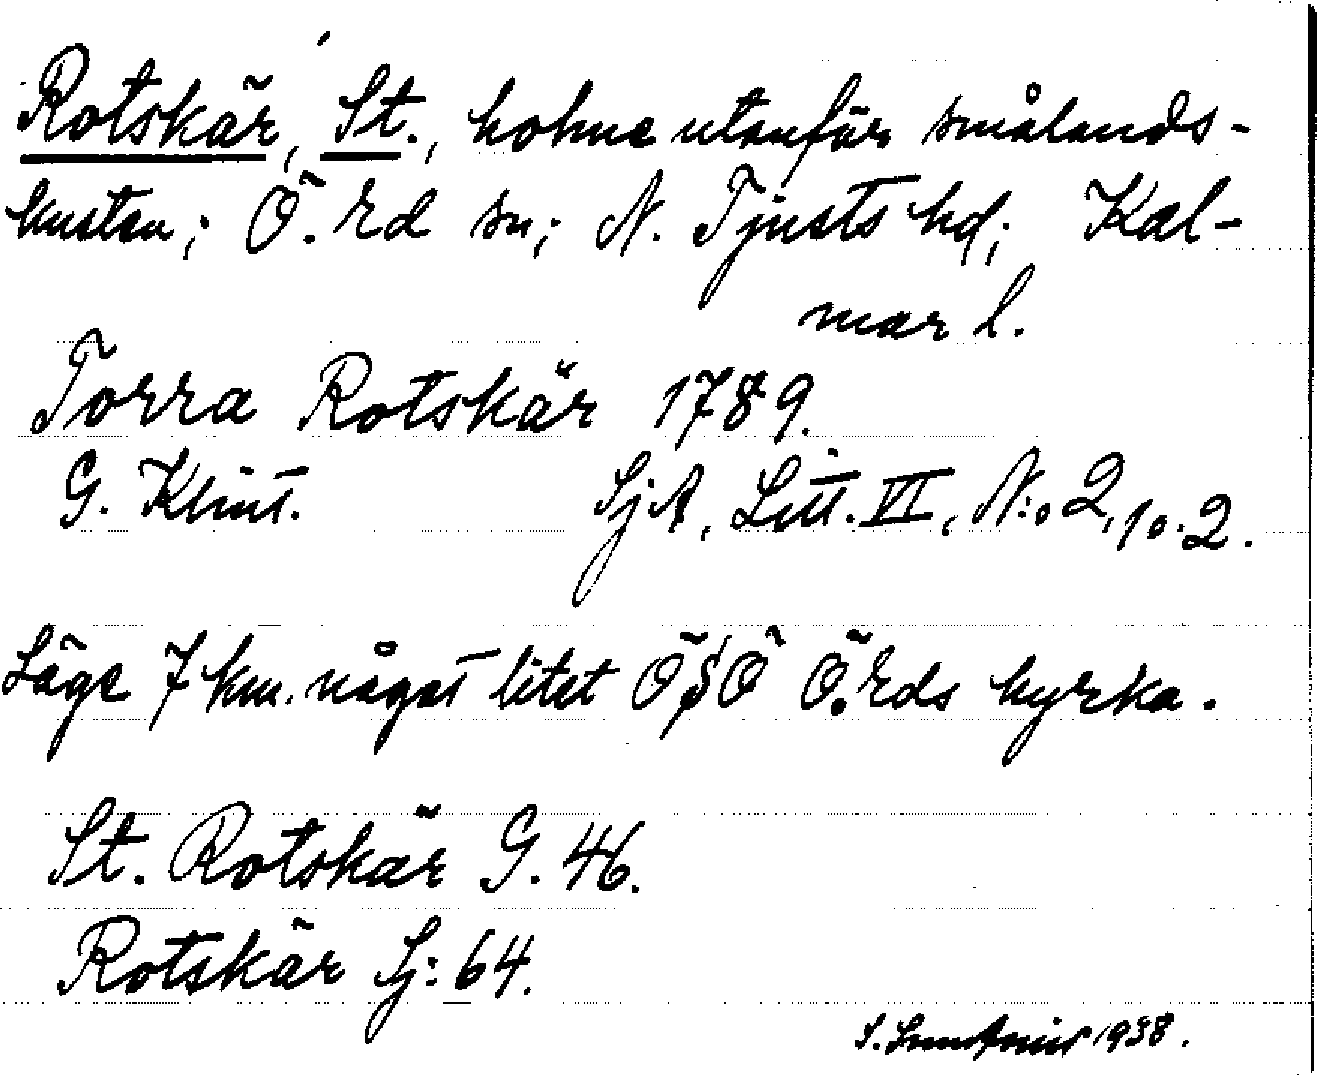 Rotskär, St., holme utanför smålands-
kusten; Ö. Ed sn; N. Tjusts hd; Kal-
mar l.
Torra Rotskär 1789.
G. Klint. SjA, Litt. VI, N:o 2, 10.2.
Läge 7 km. något litet ÖSÖ Ö. Eds kyrka.
St. Rotskär G. 46.
Rotskär Sj: 64.
S. 1938.